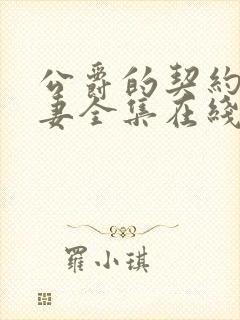 公爵的契約
妻全集在綫
羅小琪